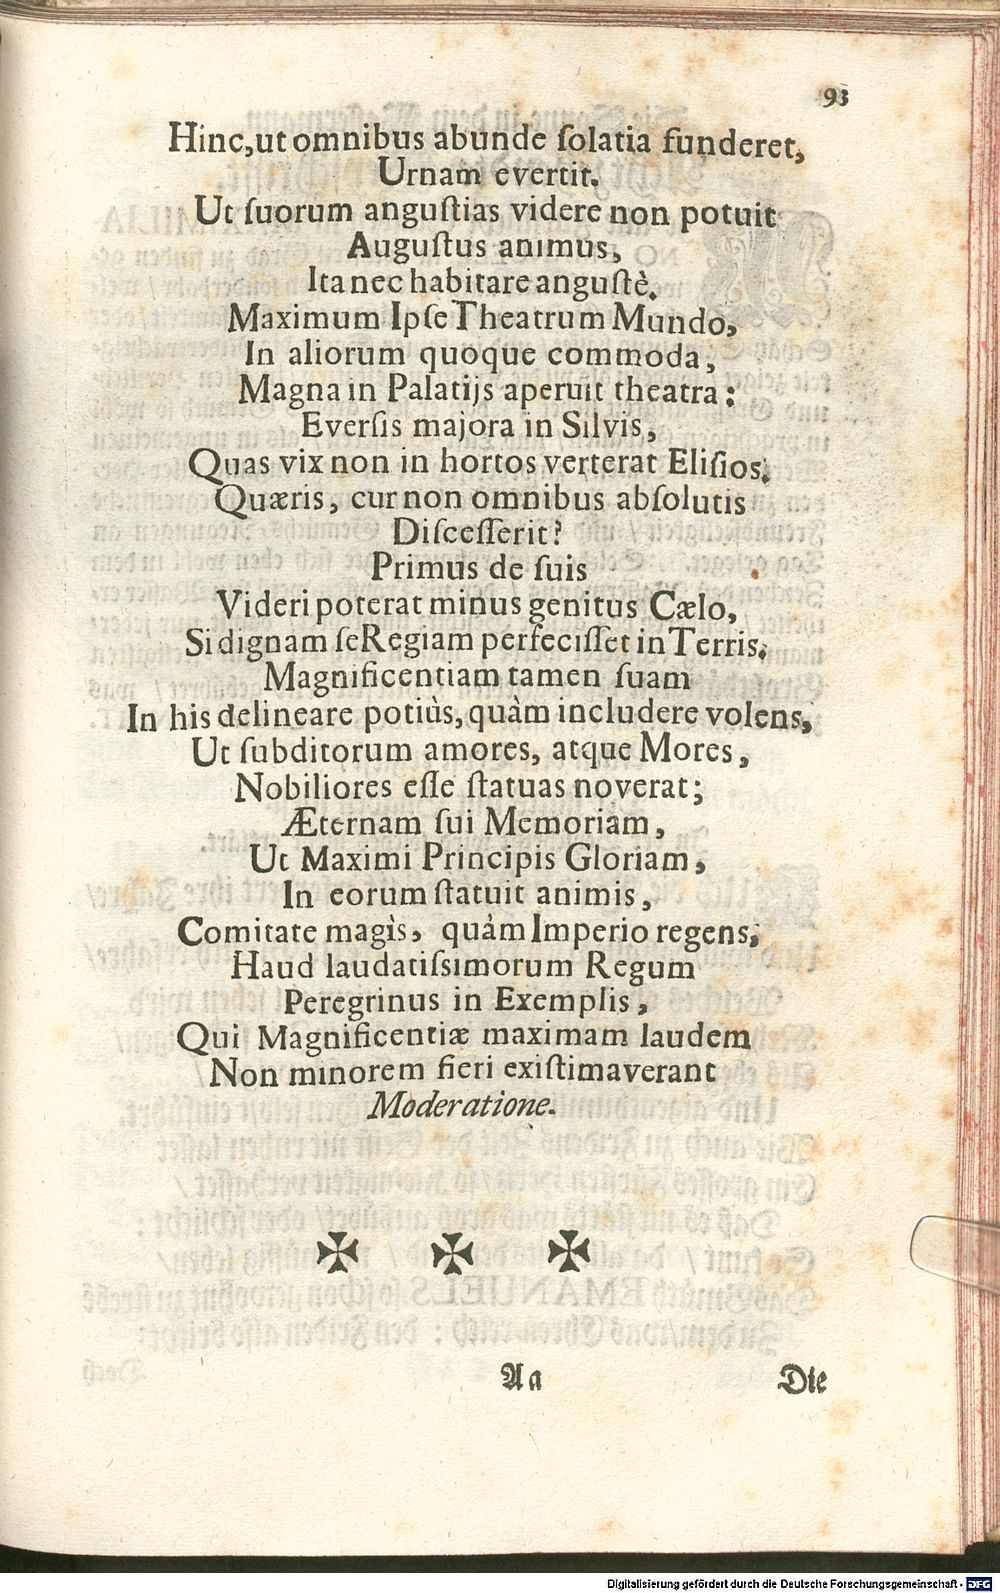 93
Hinc, ut omnibus abunde ſolatia funderet,
Urnam evertit.
Ut ſuorum anguſtias videre non potuit
Auguſtus animus,
Ita nec habitare anguſtè.
Maximum Ipſe Theatrum Mundo,
In aliorum quoque commoda,
Magna in Palatijs aperuit theatra:
Everſis majora in Silvis,
Quas vix non in hortos verterat Eliſios.
Quæris, cur non omnibus abſolutis
Diſceſſerit?
Primus de ſuis
Videri poterat minus genitus Cælo,
Si dignam ſe Regiam perfeciſſet in Terris.
Magnificentiam tamen ſuam
In his delineare potiùs, quàm includere volens,
Ut ſubditorum amores, atque Mores,
Nobiliores eſſe ſtatuas noverat;
Æternam ſui Memoriam,
Ut Maximi Principis Gloriam,
In eorum ſtatuit animis,
Comitate magìs, quàm Imperio regens;
Haud laudatiſſimorum Regum
Peregrinus in Exemplis,
Qui Magnificentiæ maximam laudem
Non minorem fieri exiſtimaverant
Moderatione.
Aa Die
Digitalisierung gefördert durch die Deutsche Forschungsgemeinschaft - DFG